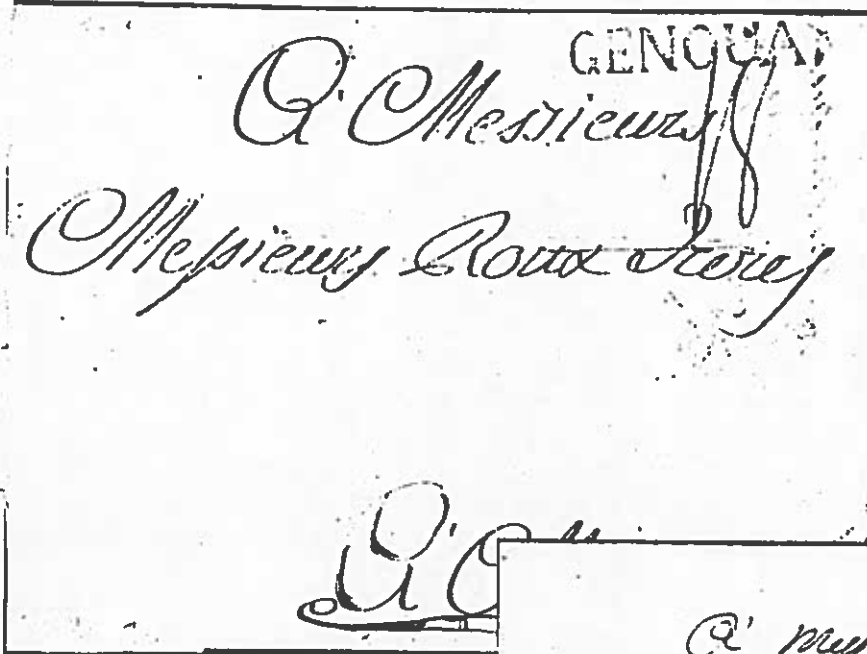 GENOUA
A' Messieurs
Messieurs Roux freres
A'
A'